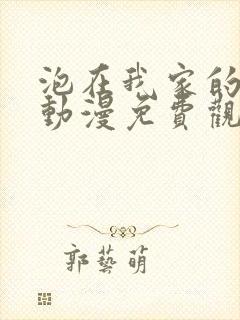 泡在我家的
動漫免費觀
郭藝萌